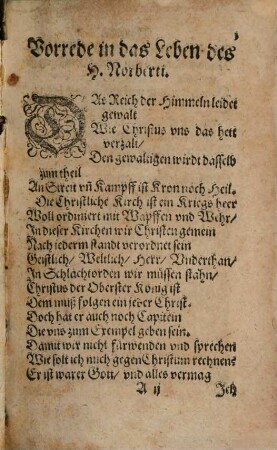 Vorrede in das Leben des
H. Norberti.
DAs Reich der Himmeln leidet
gewalt
Wie Christus vns das hett
verzalt/
Den gewaltigen wirdt dasselb
zum theil
An Streit vñ Kampff ist Kron noch Heil.
Die Christliche Kirch ist ein Kriegs heer
Woll ordiniert mit Wapffen vnd Wehr/
In dieser Kirchen wir Christen gemein
Nach iederm standt verordnet sein
Geistlich/ Weltlich/ Herr/ Vnderthan/
In Schlachtorden wir müssen stahn/
Christus der Oberster König ist
Dem muß folgen ein jeder Christ.
Doch hat er auch noch Capitein
Die vns zum Exempel geben sein.
Damit wir nicht fürwenden vnd sprechen
Wie solt ich mich gegen Christum rechnen
Er ist warer Gott/ vnd alles vermag
A ij Ich